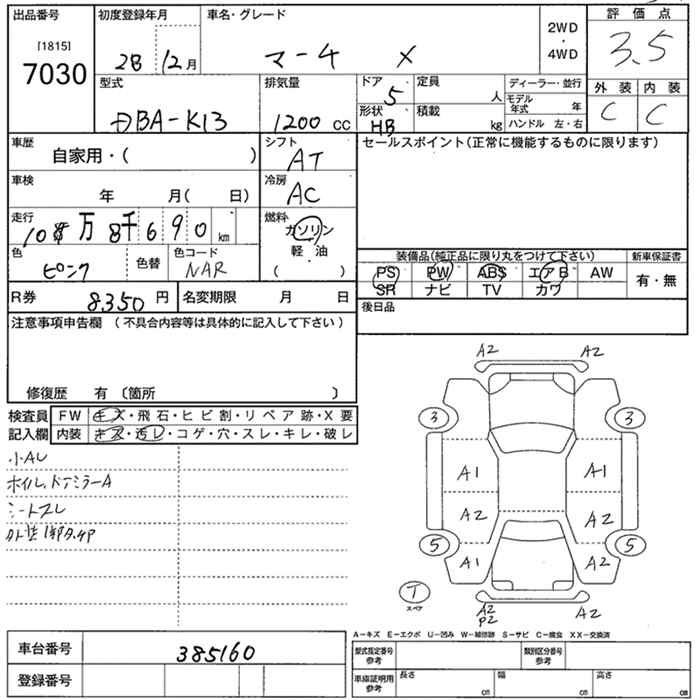 出品番号
[1815]
7030
初度登録年月
28 12月
車名・グレード
マーチ X
2WD
・
4WD
評価点
3.5
外装 内装
C C
型式
DBA-K13
排気量
1200 cc
ドア
5
形状
HB
定員
人
積載
kg
ディーラー・並行
モデル年式 年
ハンドル 左・右
車歴
自家用・( )
シフト
AT
セールスポイント(正常に機能するものに限ります)
車検
年 月( 日)
冷房
AC
走行
10 万 8千690 km
燃料
ガソリン
軽・油
( )
色
ピンク
色替
色コード
NAR
装備品(純正品に限り丸をつけて下さい)
PS PW ABS エアB AW
SR ナビ TV カワ
新車保証書
有・無
R券
8350 円
名変期限 月 日
後日品
注意事項申告欄 (不具合内容等は具体的に記入して下さい)
修復歴 有 〔箇所 〕
検査員記入欄
FW キズ・飛石・ヒビ割・リペア跡・X要
内装 キズ・汚レ・コゲ・穴・スレ・キレ・破レ
小AU
ホイル、ドアミラーA
シートスレ
A2 A2
3 3
A1 A1
A2 A2
5 5
A1 A2
T
スペア
A2
P2
A2
A−キズ E−エクボ U−凹み W−補修跡 S−サビ C−腐食 XX−交換済
車台番号
385160
登録番号
型式指定番号
参考
類別区分番号
参考
車庫証明用
参考
長さ cm
幅 cm
高さ cm